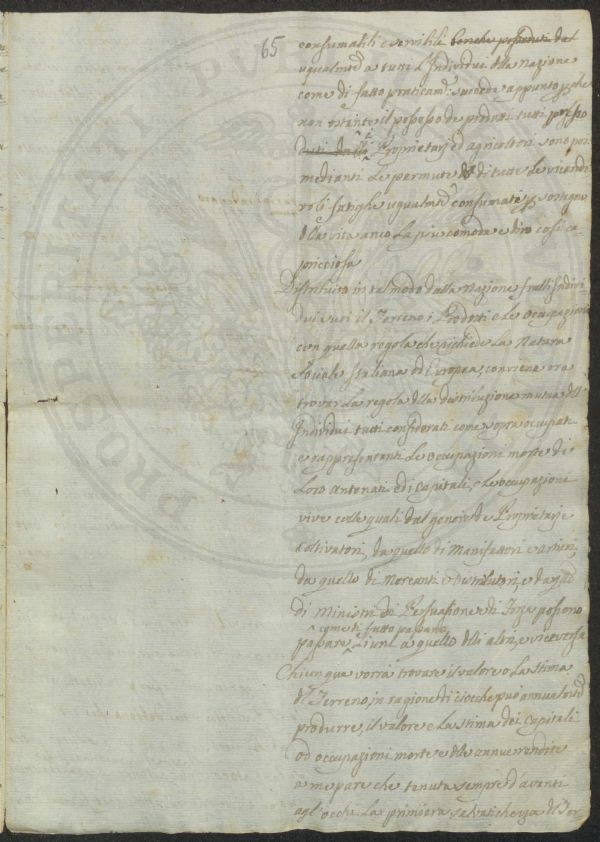 65
consumabili e servibili benche posseduti dal
ugualmte a tutti l'Individui della nazione
come di fatto praticamte succede appunto perche
non ostante il possesso de prodotti tutti presso
dati dalli i Proprietarj ed agricoltori sono poi
medianti le permute di tutte le vicende
voli fatighe ugualmte consumati per sostegno
della vita anco la piu comoda e diro cosi ca
pricciosa
Distribuito in tal modo dalla nazione fralli Indivi
dui suoi il Terreno i Prodotti e le occupazioni
con quella regola che richiede la Natura
sociale Italiana ed Europea, conviene ora
trovar la regola della distribuzione mutua dell
Individui tutti considerati come sopra occupati
e rappresentanti le occupazioni morte de
loro antenati ed i Capitali, e le occupazioni
vive colle quali dal genere de Proprietarj e
coltivatori, da quello di Manifattori e artieri,
da quello di Mercanti e distributori, e da quello
di ministri di Persuasione e di forza possono
come di fatto passano
passare l'uni a quello delli altri, e viceversa
Chiunque vorrà trovare il valore o la stima
del Terreno, in ragione di ciocche può annualmte
produrre, il valore e la stima dei Capitali
od occupazioni morte e delle annue rendite
a me pare che tenuta sempre d'avanti
agl'occhi la primiera selvatichezza di Ter
PROSPERITATI PUBLICAE